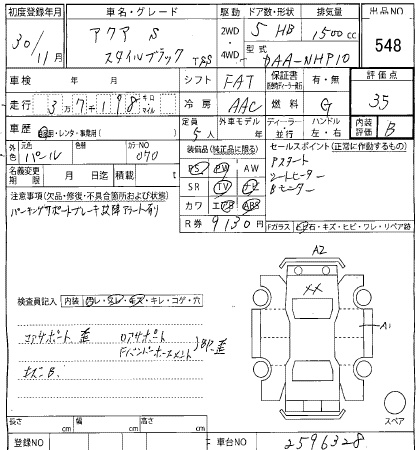 初度登録年月 車名・グレード 駆動 ドア数・形状 排気量 出品NO
30/11月 アクア S スタイルブラック TSS 2WD・4WD 5 HB 1500cc 548
型式 DAA-NHP10
車検 年 月 シフト FAT 保証書 有・無 評価点
走行 3万7千198 キロ マイル 冷房 AAC 燃料 G 3.5
車歴 自家用・レンタ・事業用( ) 定員 5人 外車モデル 年 ディーラー 並行 ハンドル 左・右 内装評価 B
外色 元色 パール カラーNO 070
装備品(純正品に限る) セールスポイント(正常に作動するもの)
名義変更期限 月 日迄 積載 t
PS PW AW Pスタート
SR TV ナビ シートヒーター
カワ エアB ABS Bモニター
R券 9130円
注意事項(欠品・修復・不具合箇所および状態)
パーキングサポートブレーキ故障アラート有り
Fガラス 飛石・キズ・ヒビ・ワレ・リペア跡
A2
検査員記入 内装 汚レ・スレ・キズ・キレ・コゲ・穴
××
コアサポート 歪 ロアサポート
A1
キズ B.
スペア
長さ cm 幅 cm 高さ cm
登録NO 車台NO 2596328